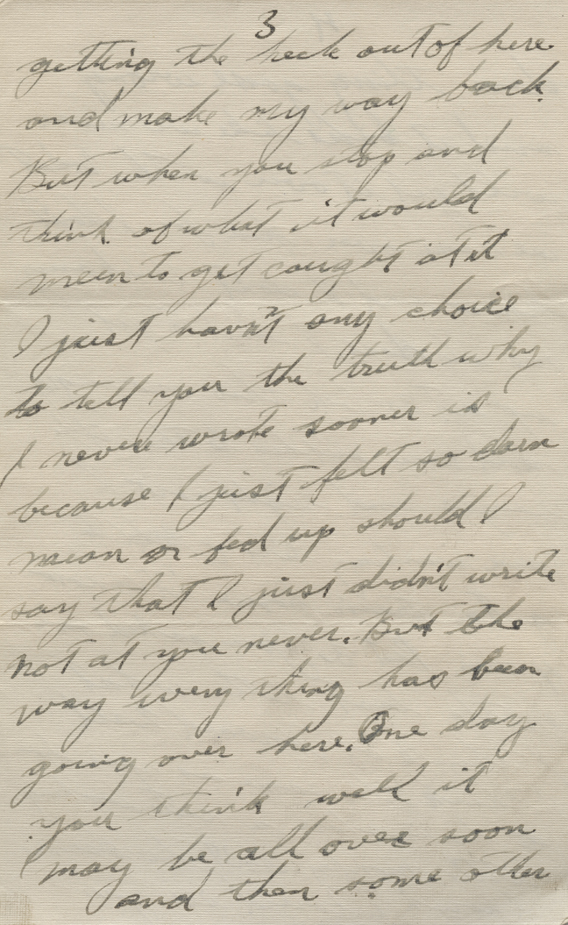 3
getting the heck out of here
and make my way back.
But when you stop and
think of what it would
mean to get caught at it
I just havn't any choice
to tell you the truth why
I never wrote sooner is
because I just felt so darn
mean or fed up should I
say that I just didn't write
not at you never. But the
way every thing has been
going over here. One day
you think well it
may be all over soon
and then some other